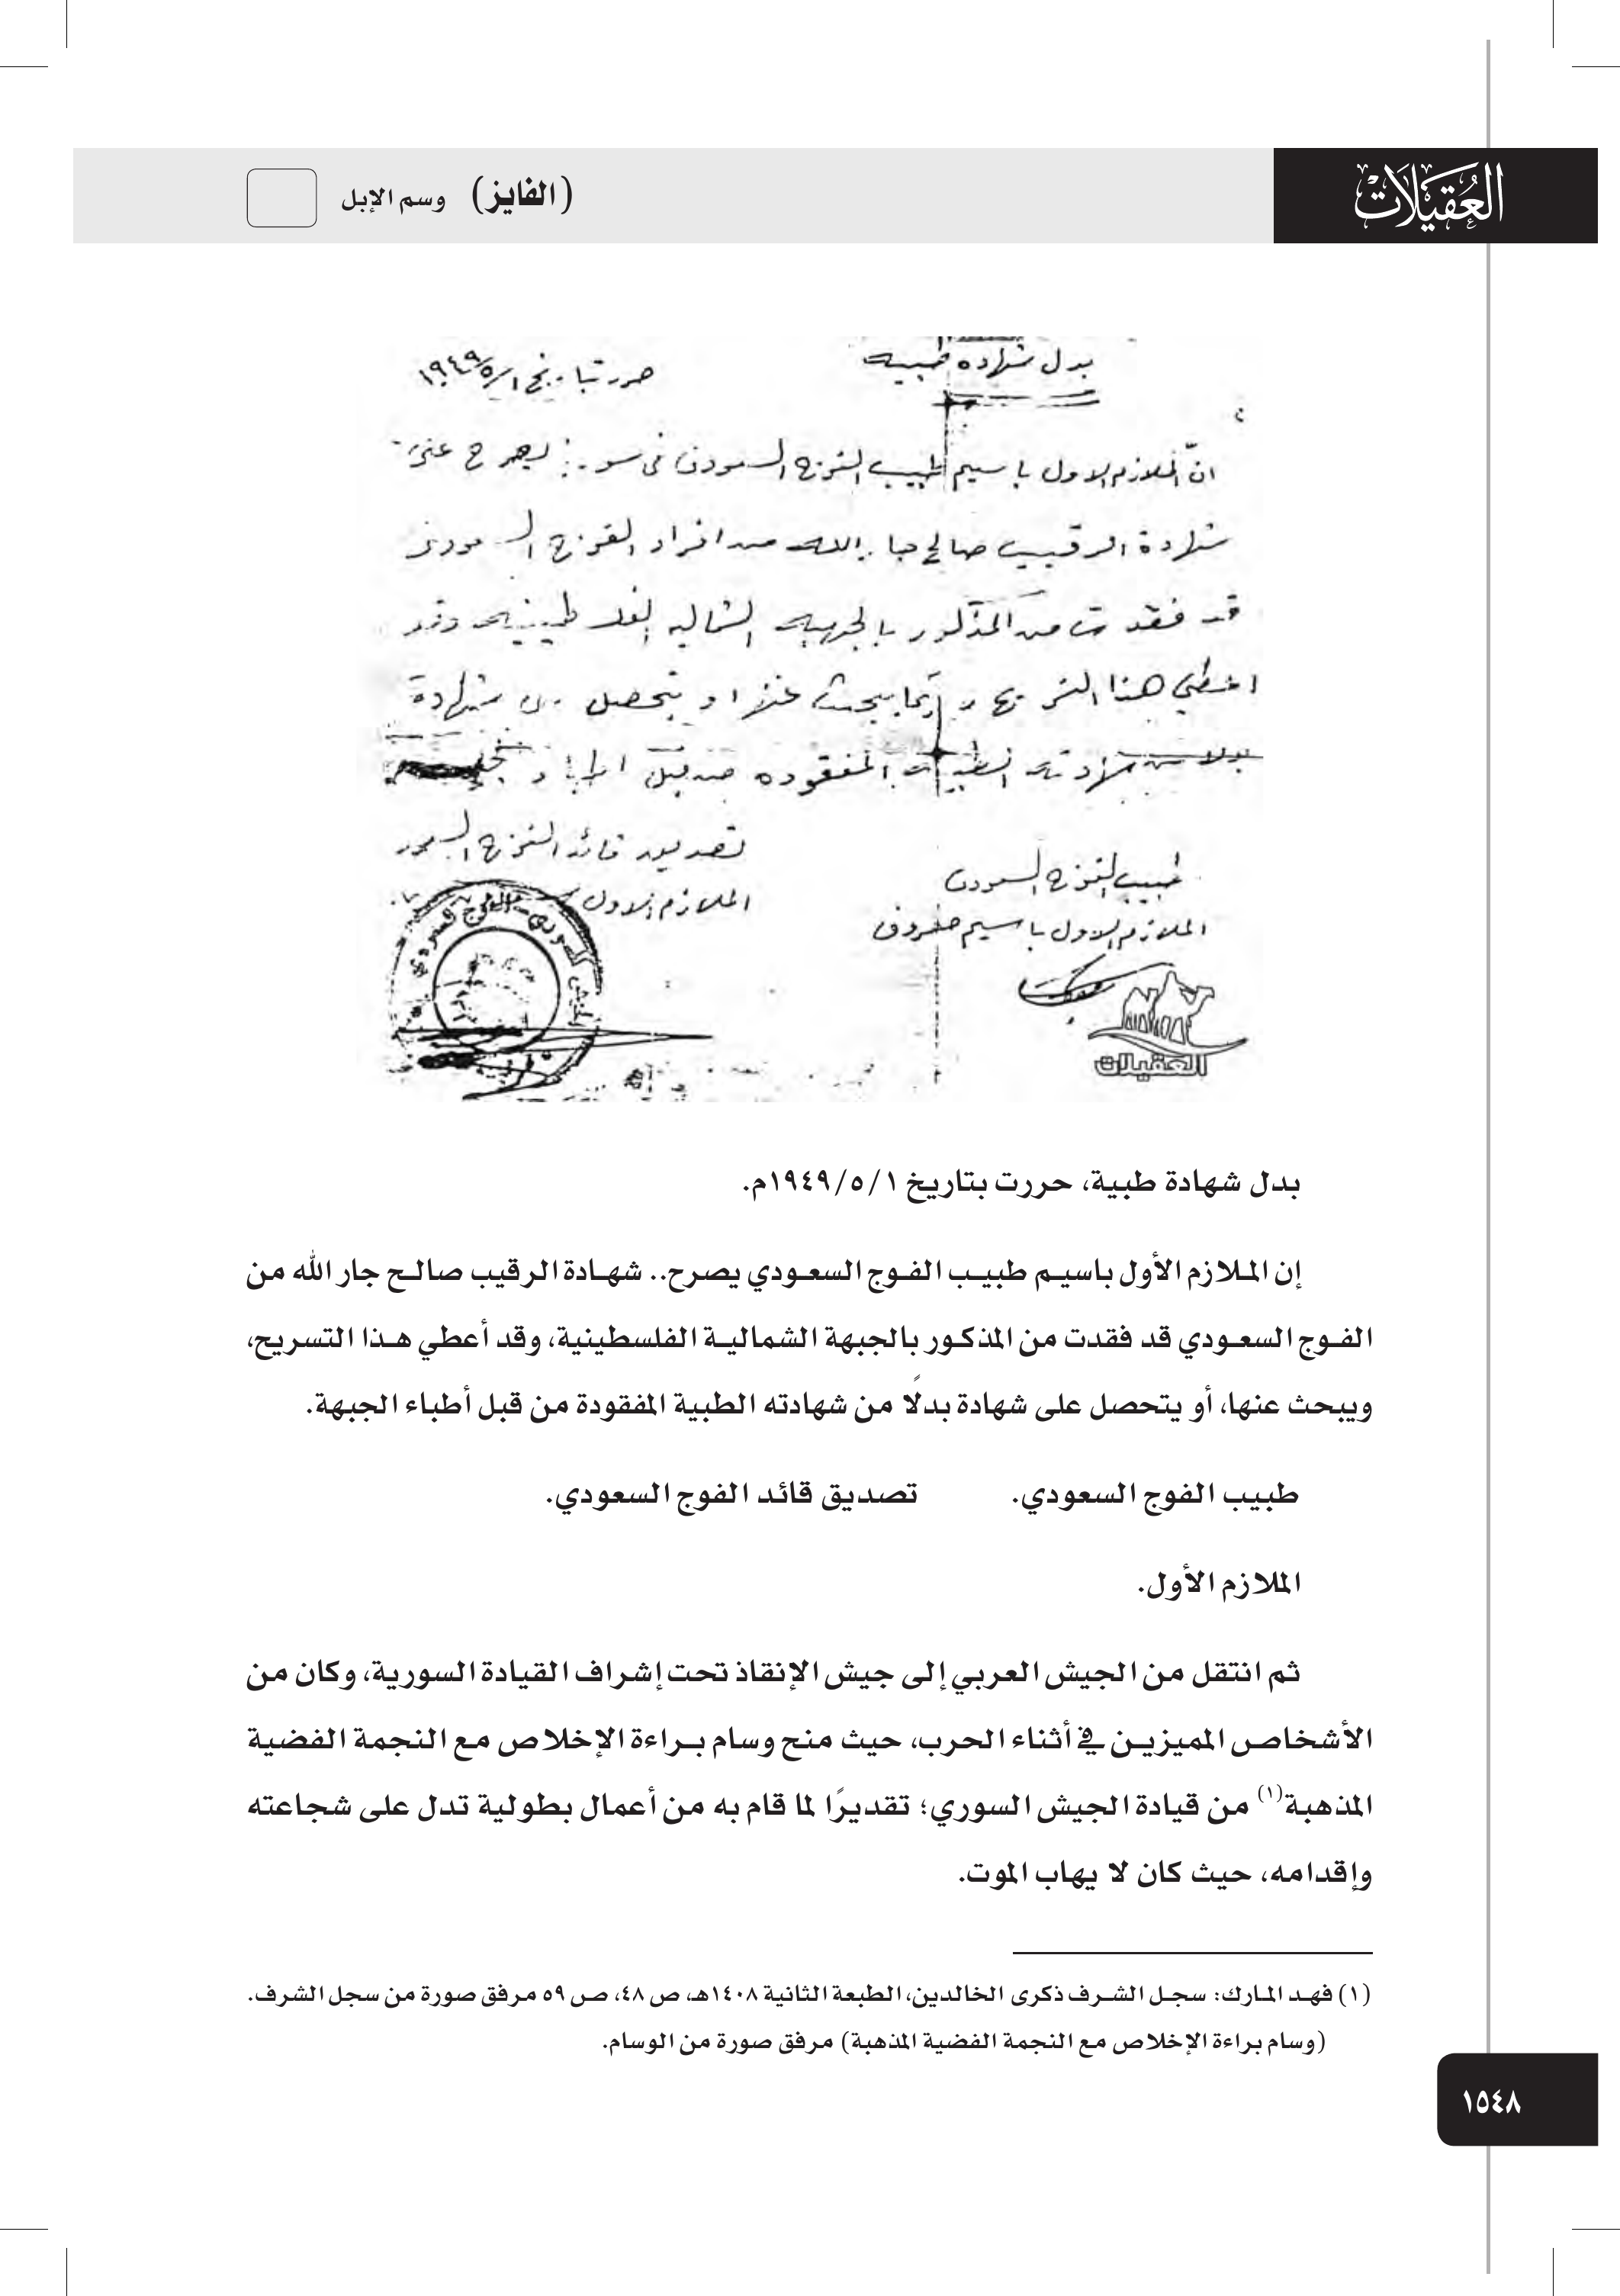 العُقيلات
(الفايز) وسم الإبل
بدل شهاده طبيه
حررت بتاريخ ١/٥/١٩٤٩
انّ الملازم الاول باسيم طبيب الفوج السعودي في سوريا يصرح
شهادة الرقيب صالح جار الله من افراد الفوج السعودي
قد فقدت من المذكور بالجبهه الشماليه الفلسطينيه وقد
اعطي هذا التسريح ريثما يبحث عنها او يتحصل على شهادة
بدلا من شهادته الطبيه المفقوده من قبل اطباء
طبيب الفوج السعودي
تصديق قائد الفوج السعودي
الملازم الاول باسيم
الملازم الاول
العقيلات
بدل شهادة طبية، حررت بتاريخ ١/ ٥/ ١٩٤٩م.
إن الملازم الأول باسيم طبيب الفوج السعودي يصرح.. شهادة الرقيب صالح جار الله من
الفوج السعودي قد فقدت من المذكور بالجبهة الشمالية الفلسطينية، وقد أعطي هذا التسريح،
ويبحث عنها، أو يتحصل على شهادة بدلًا من شهادته الطبية المفقودة من قبل أطباء الجبهة.
طبيب الفوج السعودي. تصديق قائد الفوج السعودي.
الملازم الأول.
ثم انتقل من الجيش العربي إلى جيش الإنقاذ تحت إشراف القيادة السورية، وكان من
الأشخاص المميزين في أثناء الحرب، حيث منح وسام براءة الإخلاص مع النجمة الفضية
المذهبة(١) من قيادة الجيش السوري؛ تقديرًا لما قام به من أعمال بطولية تدل على شجاعته
وإقدامه، حيث كان لا يهاب الموت.
(١) فهد المارك: سجل الشرف ذكرى الخالدين، الطبعة الثانية ١٤٠٨هـ، ص ٤٨، ص ٥٩ مرفق صورة من سجل الشرف.
(وسام براءة الإخلاص مع النجمة الفضية المذهبة) مرفق صورة من الوسام.
١٥٤٨